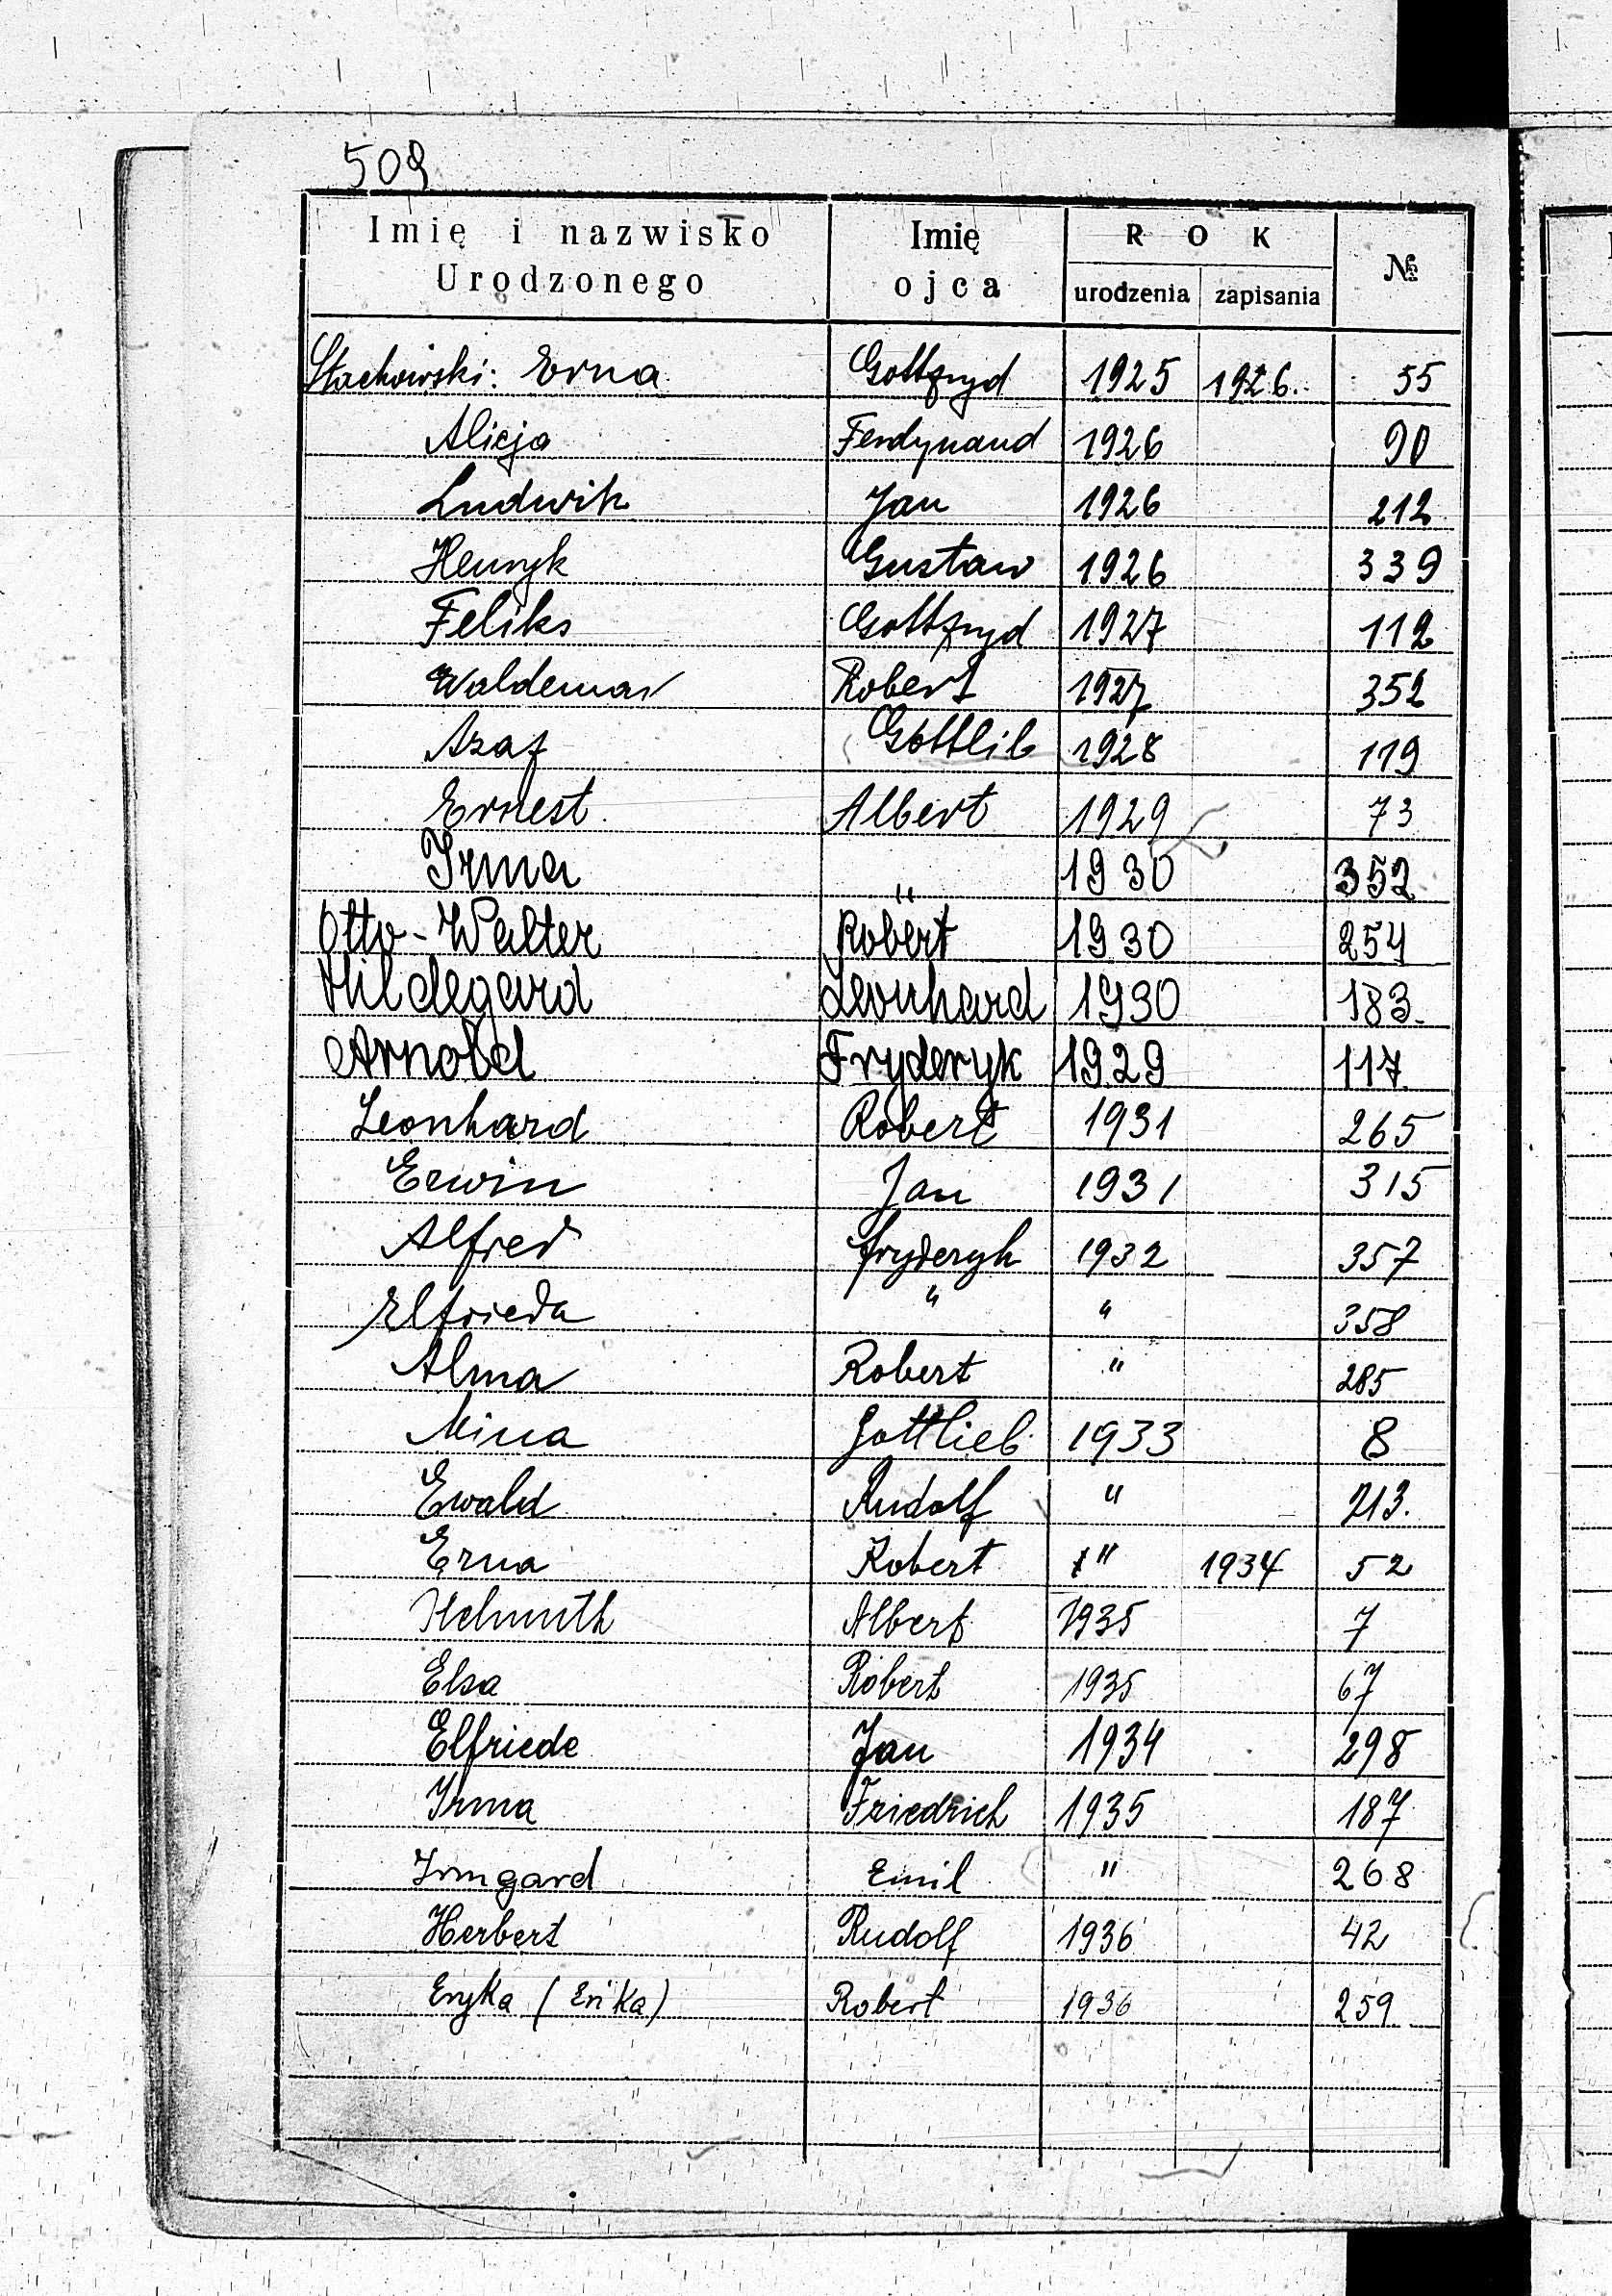 509
Imię i nazwisko Urodzonego Imię ojca ROK urodzenia zapisania №
Stachowski: Erna Gottfryd 1925 1926. 55
Alicja Ferdynand 1926 90
Ludwik Jan 1926 212
Henryk Gustaw 1926 339
Feliks Gottfryd 1927 112
Waldemar Robert 1927 352
Azaf Gottlib 1928 119
Ernest Albert 1929 73
Irma " 1930 352
Otto-Walter Robert 1930 254
Hildegard Leonhard 1930 183.
Arnold Fryderyk 1929 117
Leonhard Robert 1931 265
Erwin Jan 1931 315
Alfred Fryderyk 1932 357
Elfrieda " " 358
Alma Robert " 285
Mina Gottlieb 1933 8
Ewald Rudolf " 213.
Erna Robert " 1934 52
Helmuth Albert 1935 7
Elsa Robert 1935 67
Elfriede Jan 1934 298
Irma Friedrich 1935 187
Irmgard Emil " 268
Herbert Rudolf 1936 42
Eryka (Erika) Robert 1936 259